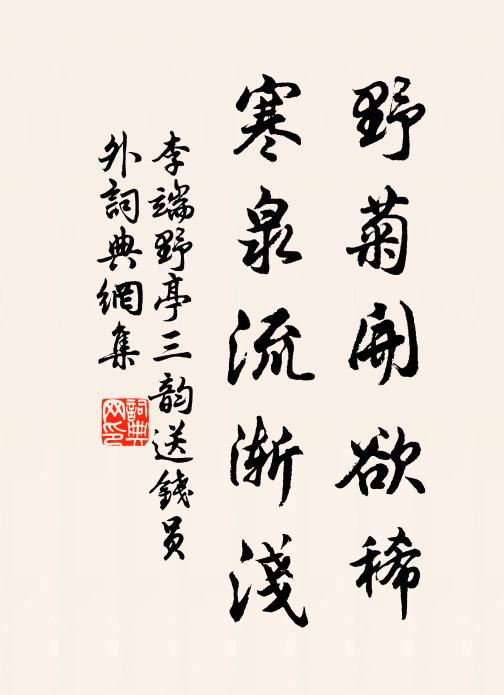 野菊開欲稀
寒泉流漸淺
李端野亭三韵送錢员
外詞典網集
詞典
网印